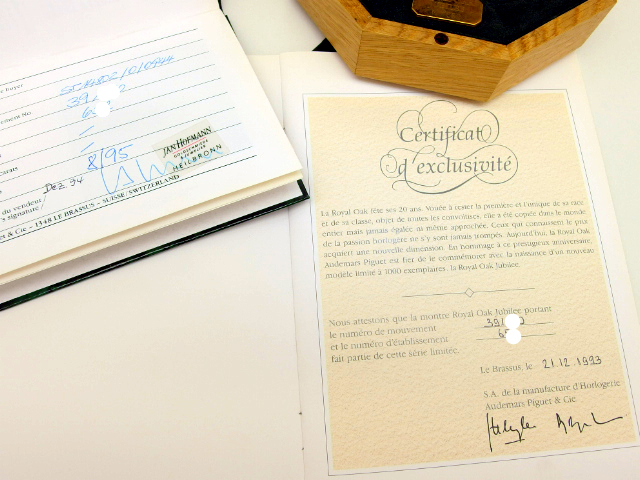 buyer
ement No.
39
2
6
arats
8/95
JAN HOFMANN
HEILBRONN
Dez. 94
du vendeur
's signature/
et & Cie – 1348 LE BRASSUS – SUISSE/SWITZERLAND
Certificat
d'exclusivité
La Royal Oak fête ses 20 ans. Vouée à rester la première et l'unique de sa race
et de sa classe, objet de toutes les convoitises, elle a été copiée dans le monde
entier mais jamais égalée ni même approchée. Ceux qui connaissent le prix
de la passion horlogère ne s'y sont jamais trompés. Aujourd'hui, la Royal Oak
acquiert une nouvelle dimension. En hommage à ce prestigieux anniversaire,
Audemars Piguet est fier de le commémorer avec la naissance d'un nouveau
modèle limité à 1000 exemplaires: la Royal Oak Jubilée.
Nous attestons que la montre Royal Oak Jubilee portant
le numéro de mouvement 39
et le numéro d'établissement 6
fait partie de cette série limitée.
Le Brassus, le 21.12.1993
S.A. de la manufacture d'Horlogerie
Audemars Piguet & Cie.